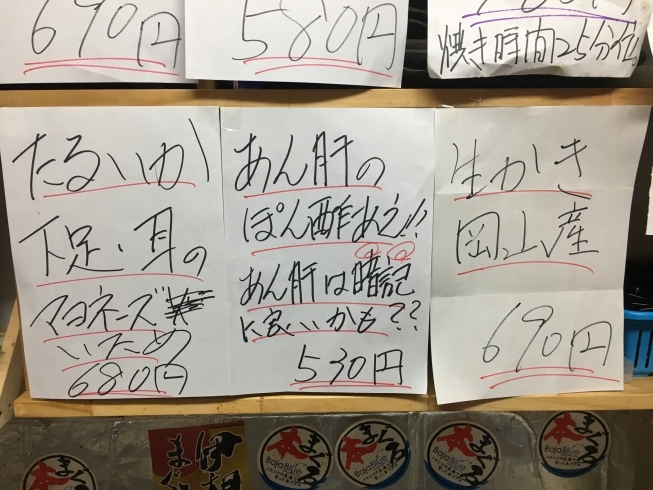 690円
580円
焼き時間25分位
たるいか
下足、耳の
マヨネーズ
いため
680円
あん肝の
ぽん酢あえ!!
あん肝は暗記
に良いかも??
530円
生がき
岡山産
690円
本まぐろ
BajaBlue
本まぐろ
BajaBlue
本まぐろ
BajaBlue
本まぐろ
BajaBlue